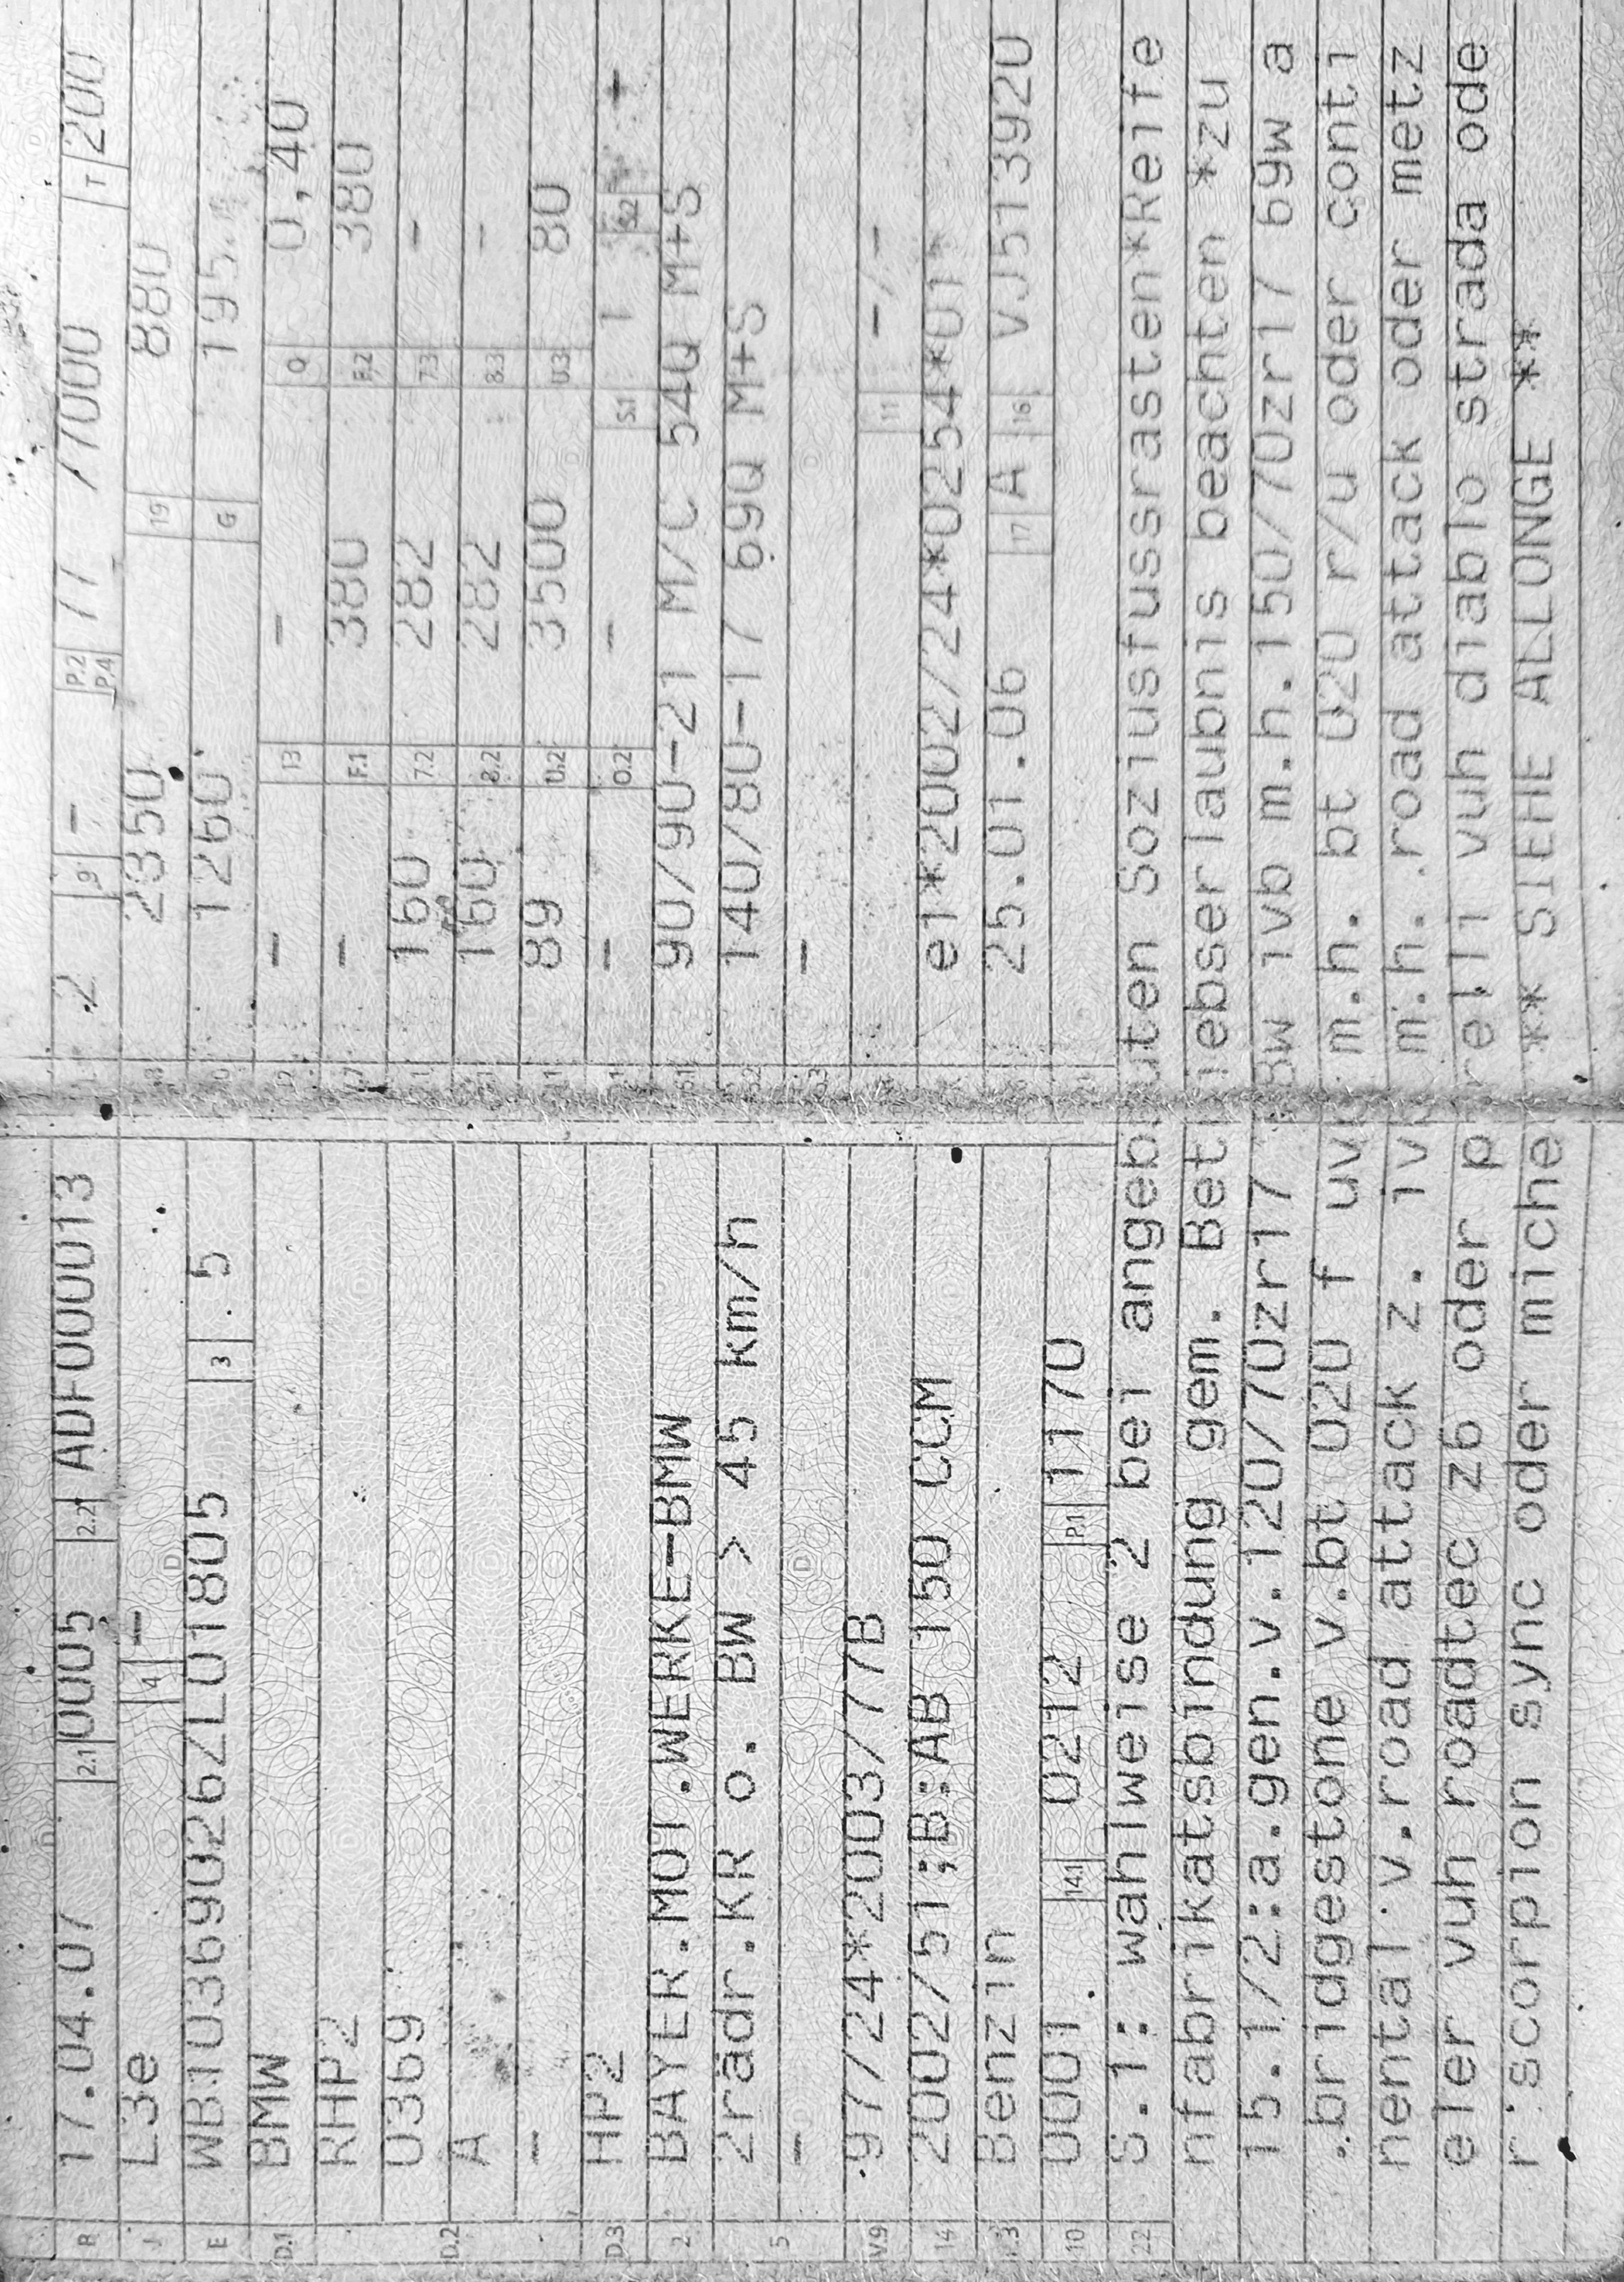 B 17.04.07 2.1 0005 2.2 ADF000013
J L3e 4 -
E WB10369026ZL01805 3 5
D.1 BMW
RHP2
D.2 0369
A
-
D.3 HP2
2 BAYER.MOT.WERKE-BMW
5 Zrädr.KR o. BW > 45 km/h
-
V.9 97/24*2003/77B
14 2002/51;B:AB 150 CCM
P.3 Benzin
10 0001 14.1 0212 P.1 1170
2 9 - P.2 P.4 77 /7000 T 200
2350 19 880
1260 G 195
- 13 - Q 0,40
V.7 - F.1 380 F.2 380
160 7.2 282 7.3 -
160 8.2 282 8.3 -
89 U.2 3500 U.3 80
- O.2 - S.1 1 S.2 +
90/90-21 M/C 54Q M+S
140/80-17 69Q M+S
-
11 -/-
e1*2002/24*0254*01*
25.01.06 17 A 16 VJ513920
22 S.1: wahlweise 2 bei angebauten Soziusfussrasten*Reife
nfabrikatsbindung gem. Betriebserlaubnis beachten *zu
15.1/2:a.gen.v.120/70zr17 58w ivb m.h.150/70zr17 69w a
.bridgestone v.bt 020 f uvm m.h. bt 020 r/u oder conti
nental v.road attack z. ivm m.h. road attack oder metz
eler vuh roadtec z6 oder pirelli vuh diablo strada ode
r scorpion sync oder miche ** SIEHE ALLONGE **